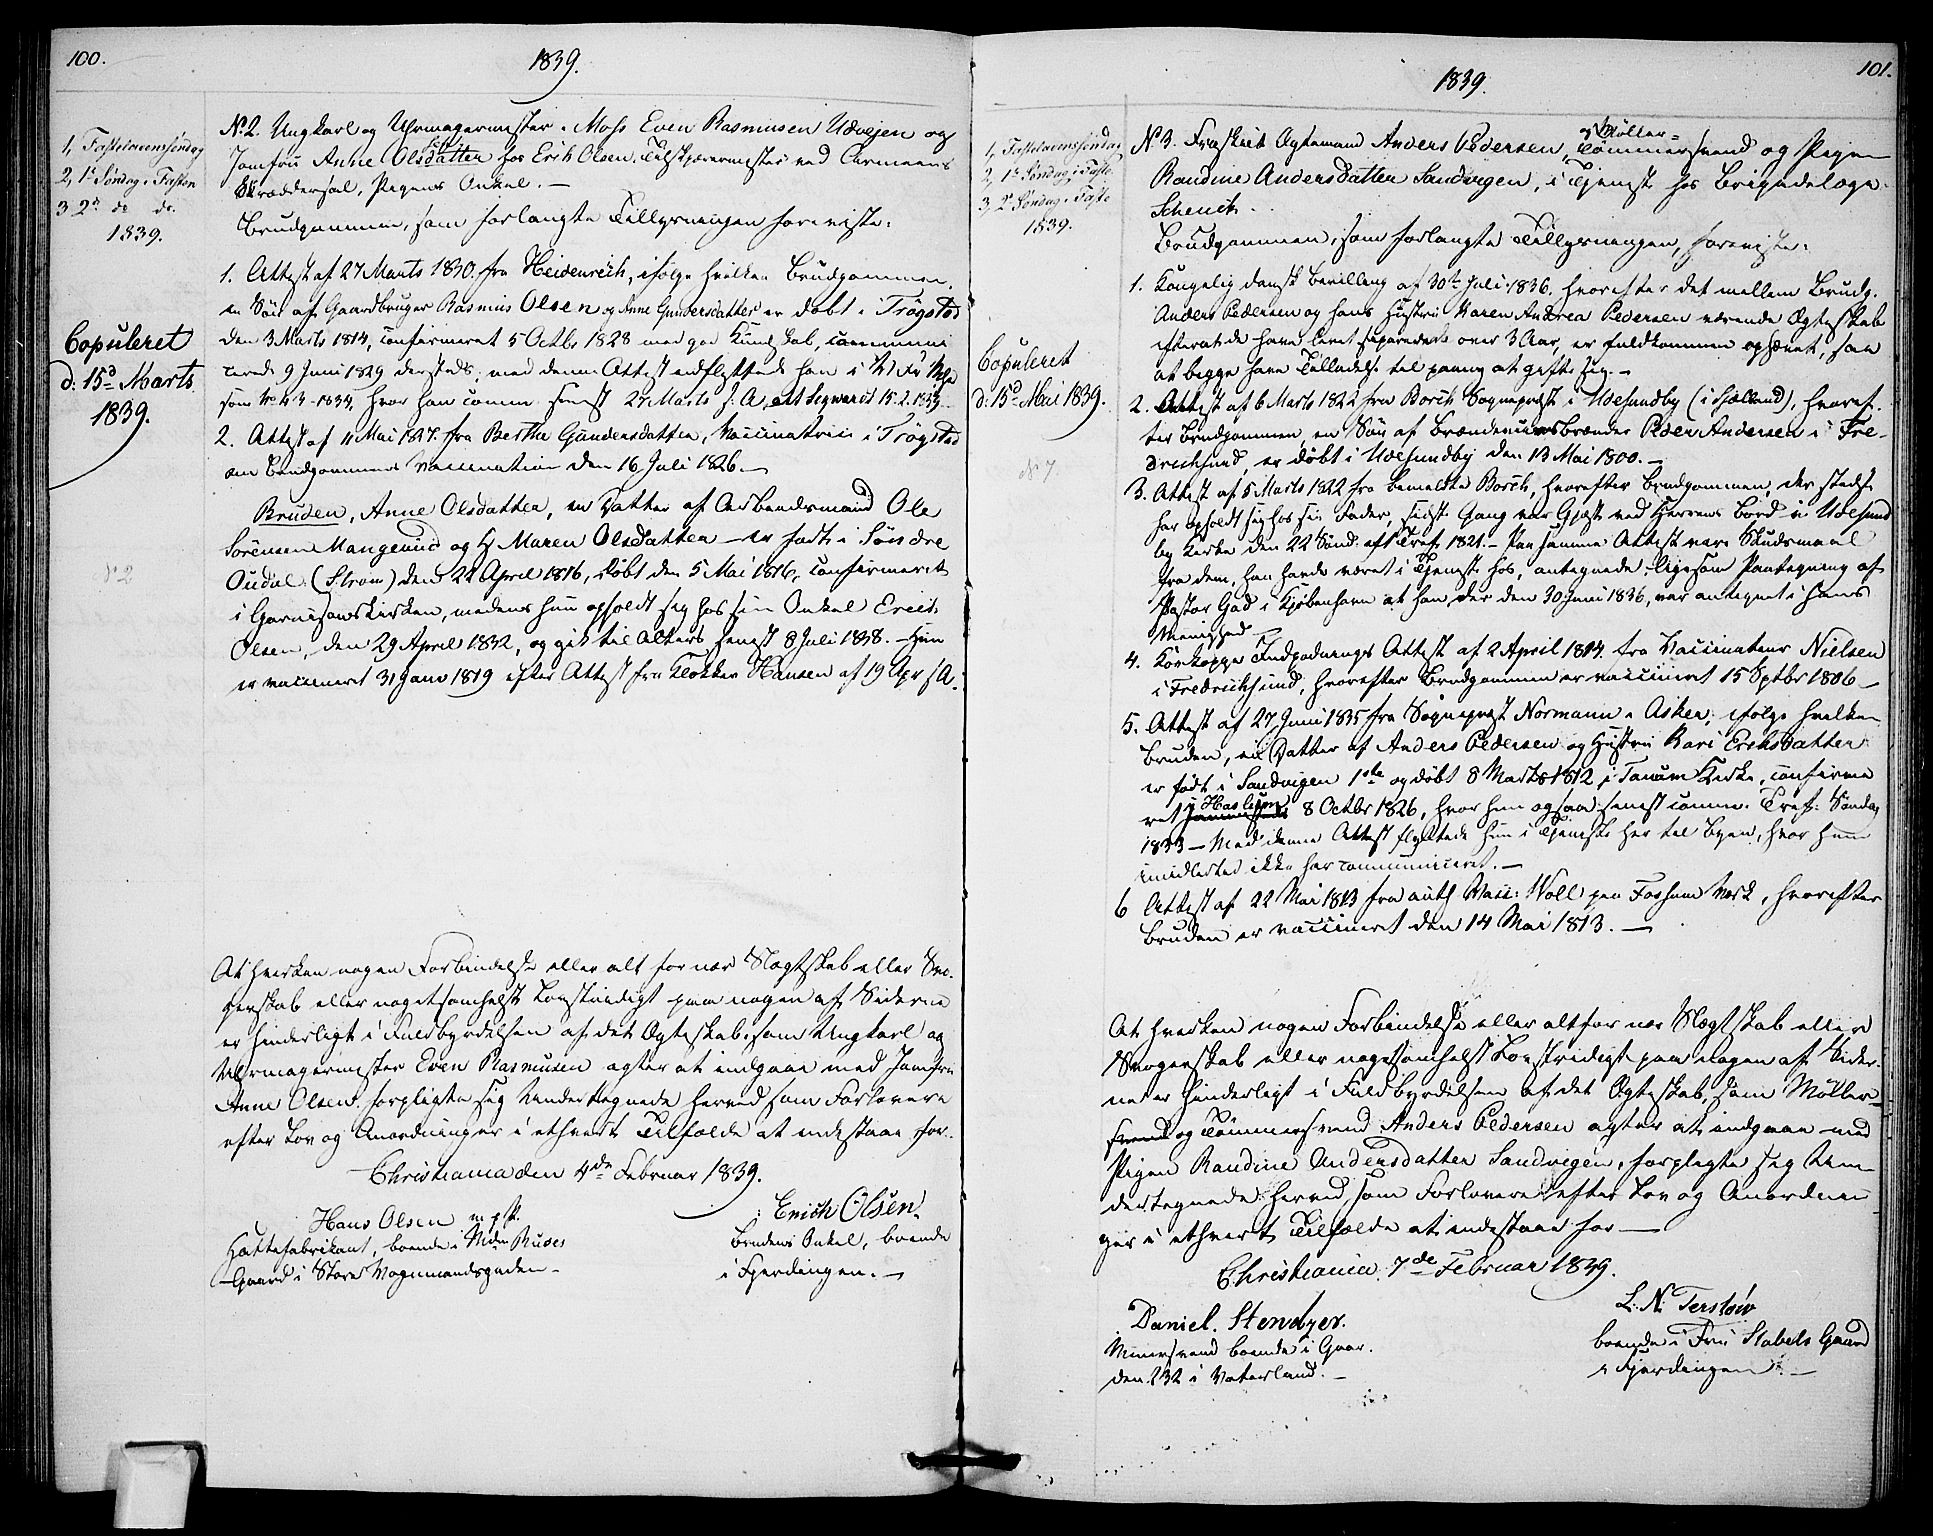 100.
1839.
1, Fastelavenssöndag
2, 1ste Söndag i Fasten
3 2den do do.
1839.
Copuleret
d: 15d Marts
1839.
No 2
No 2. Ungkarl og Uhrmagermester i Moss Even Rasmusen Udvejen og
Jomfru Anne Olsdatter hos Erik Olsen, ved
Skrædderhol, Pigens Onkel. —
Brudgommen, som forlangte Tillysningen foreviste:
1. Attest af 27 Marts 1830 fra Heidenreich, ifølge hvilken Brudgommen,
en Sön af Gaardbruger Rasmus Olsen og Anne Gundersdatter er döbt i Trögstad
den 3 Marts 1814, confirmeret 5 Octbr 1828 med god Kundskab, communi
cerede 9 Juni 1829 dersteds; med denne Attest indflyttede han i
som No 43 - 1834, hvor han comm. senest 27 Marts f. A. 15-2-1839.
2. Attest af 11 Mai 1827 fra Berthe Gundersdatter, Vaccinatrice i Trögstad
om Brudgommens Vaccination den 16 Juli 1826. —
Bruden, Anne Olsdatter, en Datter af Arbeidsmand Ole
Sörensen Mangerud og H Maren Olsdatter — er födt i Söndre
Oudal (Strøm) den 22 April 1816, döbt den 5 Mai 1816, confirmeret
i Garnisonskirken, medens hun opholdt sig hos sin Onkel Erich
Olsen, den 29 April 1832, og gik til Alters senest 8 Juli 1838. Hun
er vaccineret 31 Janv 1819 efter Attest fra Klokker Hansen af 19 Apr f A.
At hverken nogen Forbindelse eller alt for nær Slægtskab eller Svo-
gerskab eller nogetsomhelst Lovstridigt paa nogen af Siderne
er hinderligt i Fuldbyrdelsen af det Ægteskab, som Ungkarl og
Uhrmagermester Even Rasmusen agter at indgaae med Jomfru
Anne Olsen, forpligte sig Undertegnede herved som Forlovere
efter Lov og Anordninger i ethvert Tilfælde at indestaae for.
Christiania den 4de Februar 1839.
Hans Olsen m. p. P.
Hattefabrikant, boende i Mdm Ruses
Gaard i Store Vognmandsgaden —
Erich Olsen.
Brudens Onkel, boende
i Fjerdingen. —
101.
1839.
1, Fastelavenssöndag
2, 1ste Söndag i Faste
3, 2. Söndag i Faste
1839.
Copuleret
d: 15d Mai 1839.
No 7
No 3. Fraskilt Ægtemand Anders Pedersen, Möller=
Tömmersvend og Pigen
Randine Andersdatter Sandvigen, i Tjeneste hos Brigadelæge
Schenck.
Brudgommen, som forlangte Tillysningen, foreviste:
1. Kongelig dansk Bevilling af 30te Juli 1836, hvorefter det mellem Brudg.
Anders Pedersen og hans Hustru Karen Andrea Pedersen værende Ægteskab
efterat de have levet separerede over 3 Aar, er fuldkommen ophævet, saa
at begge have Tilladelse til paany at gifte sig. —
2. Attest af 6 Marts 1822 fra Borch Sognepræst i Udesundby (i Sjælland), hvoref-
ter Brudgommen, en Sön af Brændeviinsbrænder Peder Andersen i Fre-
drichsund, er döbt i Udesundby den 13 Mai 1800. —
3. Attest af 5 Marts 1822 fra bemeldte Borch, hvorefter Brudgommen, der stedse
har opholdt sig hos sin Fader, sidste Gang var Gjæst ved Herrens Bord i Udesund
by Kirke den 22 Sönd. eft. Tref. 1821. — Paa samme Attest vare Skudsmaal
fra dem, han havde været i Tjeneste hos, antegnede, ligesom Paategning af
Pastor Gad i Kjöbenhavn at han der den 30 Juni 1836, var antegnet i hans
Menighed —
4. Kokoppe Indpodnings Attest af 2 April 1814 fra Vaccinateur Nielsen
i Fredrichsund, hvorefter Brudgommen er vaccineret 15 Sptbr 1806 —
5. Attest af 27 Juni 1835 fra Sognepræst Normann i Asker, ifølge hvilken
Bruden, en Datter af Anders Pedersen og Hustru Kari Erichsdatter
er födt i Sandvigen 1ste og döbt 8 Marts 1812 i Tanum Kirke, confirme
ret i Haslum 8 Octbr 1826, hvor hun ogsaa senest comm. Tref: Söndag
1833 — Med denne Attest flyttede hun i Tjeneste her til Byen, hvor hun
imidlertid ikke har communiceret. —
6 Attest af 22 Mai 1813 fra auth Vacc: Woll paa Fossum Værk, hvorefter
Bruden er vaccineret den 14 Mai 1813. —
At hverken nogen Forbindelse eller altfor nær Slægtskab eller
Svogerskab eller nogetsomhelst Lovstridigt paa nogen af Sider-
ne er hinderligt i Fuldbyrdelsen af det Ægteskab, som Möller-
svend og Tömmersvend Anders Pedersen agter at indgaae med
Pigen Randine Andersdatter Sandvigen, forpligte sig Un-
dertegnede herved, som Forlovere efter Lov og Anordnin-
ger i ethvert Tilfælde at indestaae for —
Christiania 7de Februar 1839.
Daniel. Stendyer.
Murersvend boende i Gaar-
den 232 i Vaterland. —
L. N. Terslöw
boende i Fru Stabels Gaard
i Fjerdingen. —